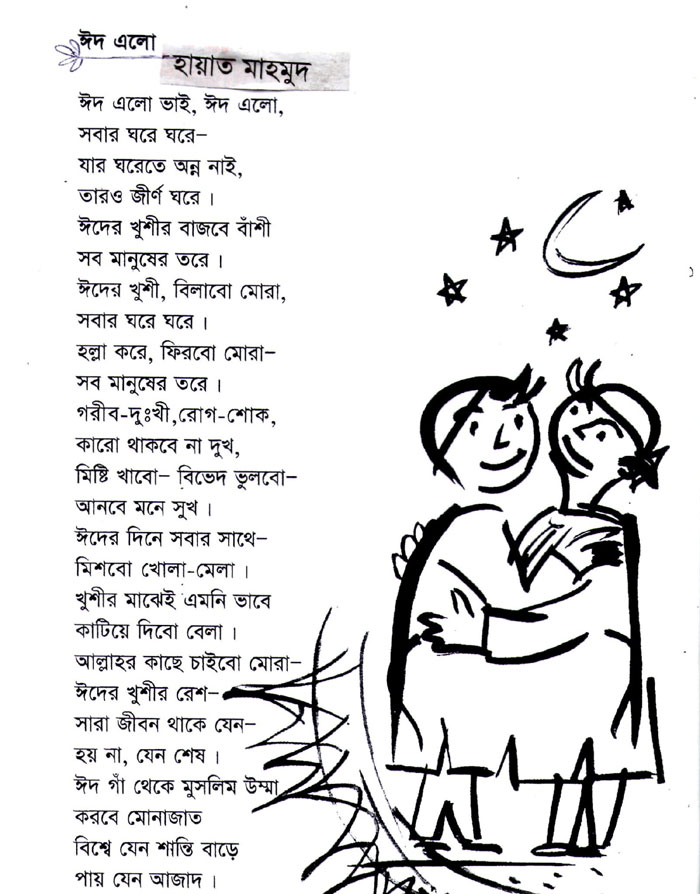 ঈদ এলো
হায়াত মাহমুদ
ঈদ এলো ভাই, ঈদ এলো,
সবার ঘরে ঘরে–
যার ঘরেতে অন্ন নাই,
তারও জীর্ণ ঘরে।
ঈদের খুশীর বাজবে বাঁশী
সব মানুষের তরে।
ঈদের খুশী, বিলাবো মোরা,
সবার ঘরে ঘরে।
হল্লা করে, ফিরবো মোরা–
সব মানুষের তরে।
গরীব-দুঃখী,রোগ-শোক,
কারো থাকবে না দুখ,
মিষ্টি খাবো– বিভেদ ভুলবো–
আনবে মনে সুখ।
ঈদের দিনে সবার সাথে–
মিশবো খোলা-মেলা।
খুশীর মাঝেই এমনি ভাবে
কাটিয়ে দিবো বেলা।
আল্লাহর কাছে চাইবো মোরা–
ঈদের খুশীর রেশ–
সারা জীবন থাকে যেন–
হয় না, যেন শেষ।
ঈদ গাঁ থেকে মুসলিম উম্মা
করবে মোনাজাত
বিশ্বে যেন শান্তি বাড়ে
পায় যেন আজাদ।